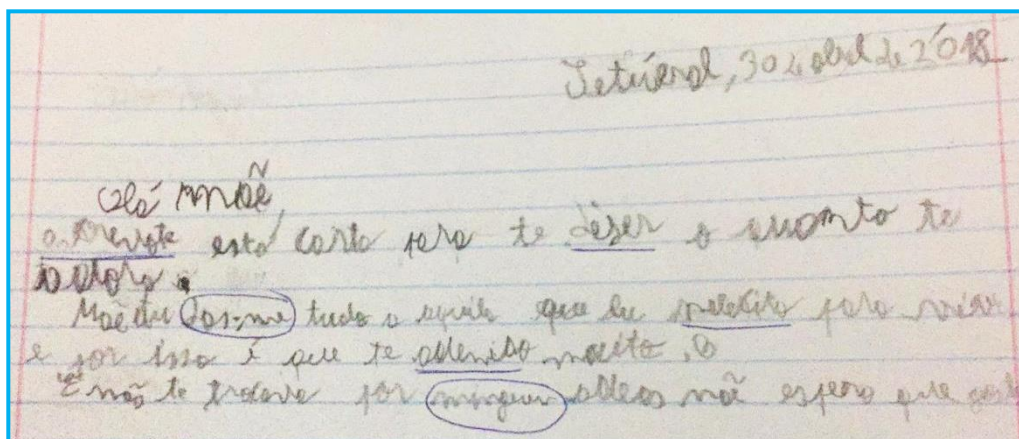 Setúbal, 30 de abril de 2018
Olá mãe,
esta carta para te diser o quanto te
adoro.
Mãe tu das-me tudo o aquilo que eu para viver
e por isso é que te muito.
E não te trocava por ninguem mãe espero que